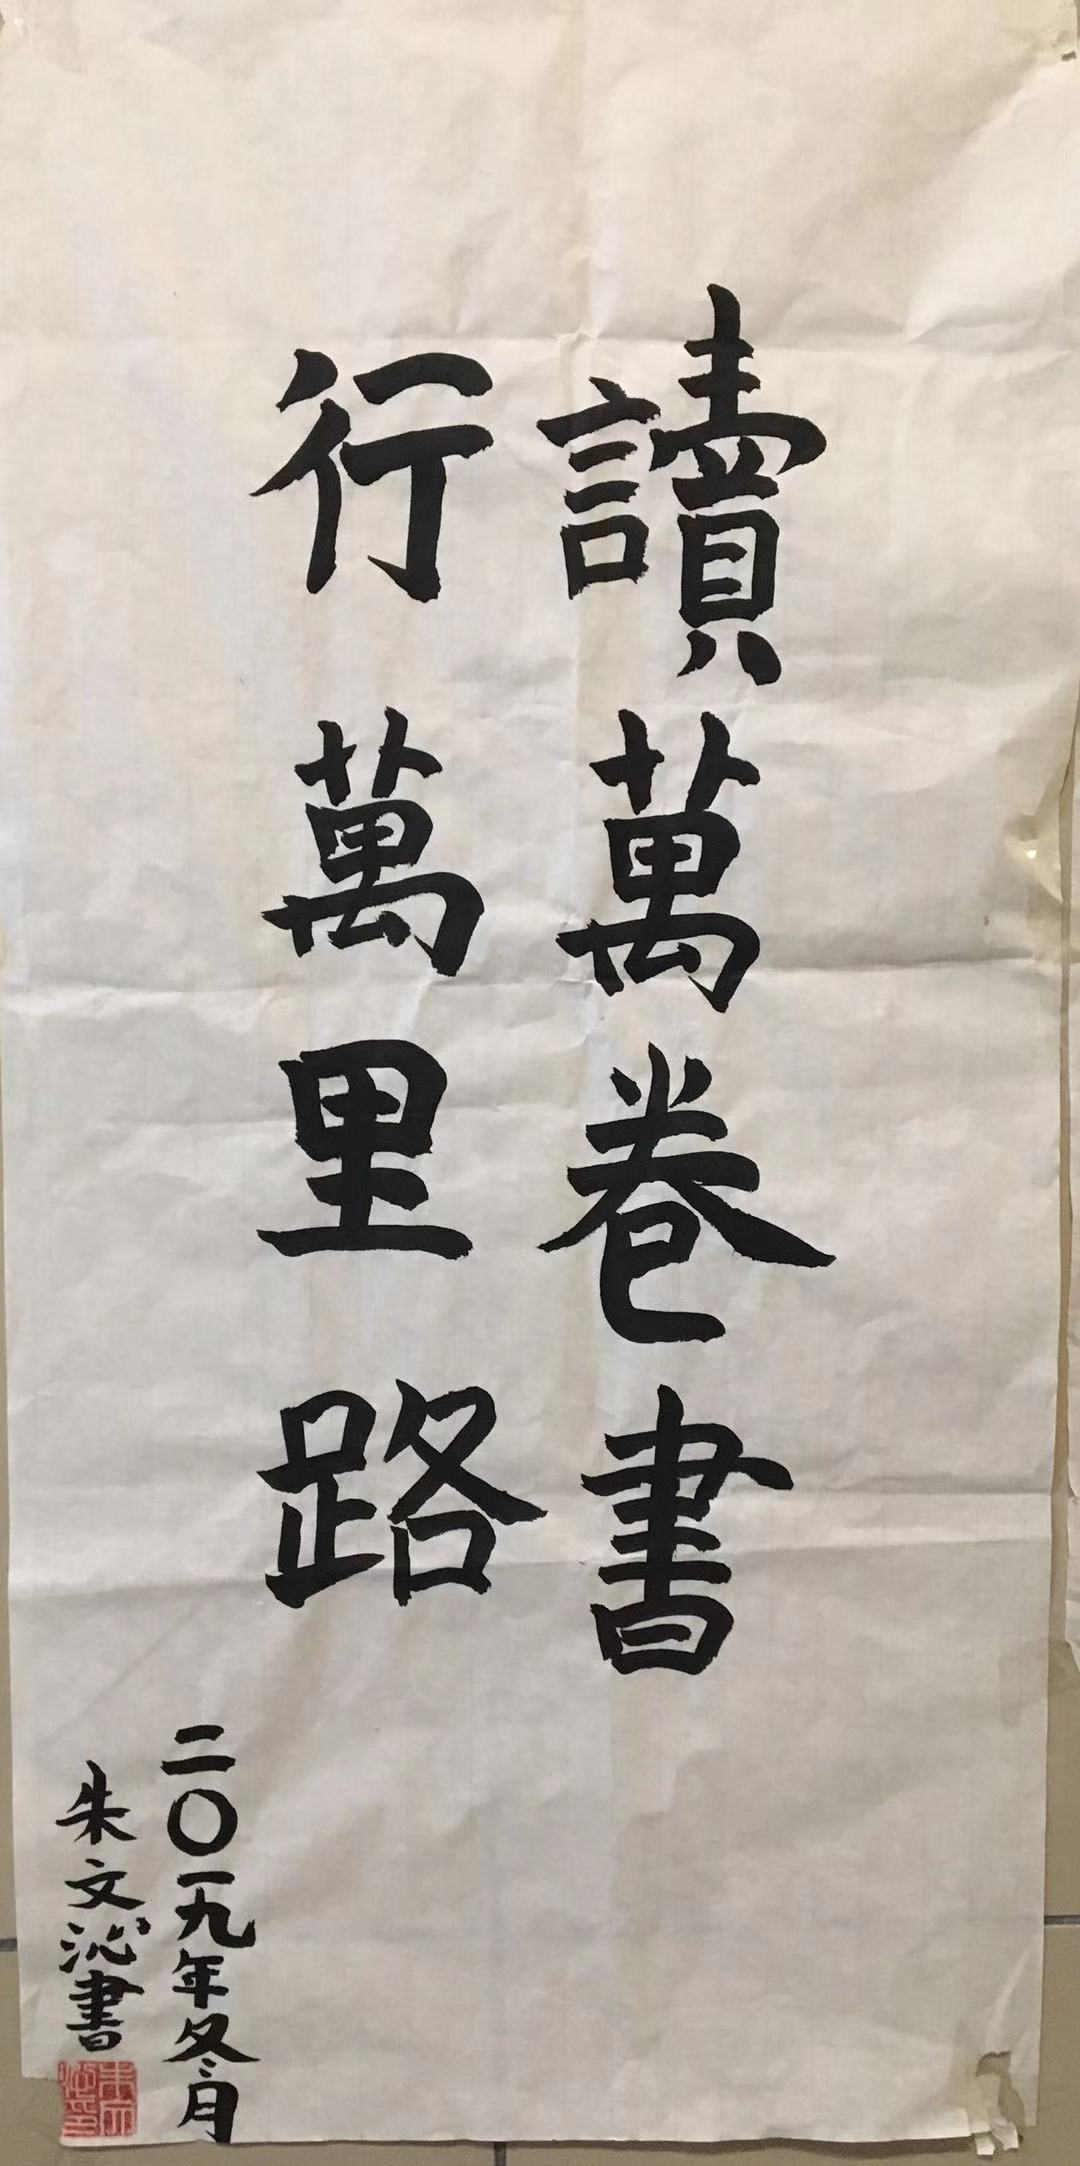 讀萬卷書
行萬里路
二〇一九年冬月
朱文沁書